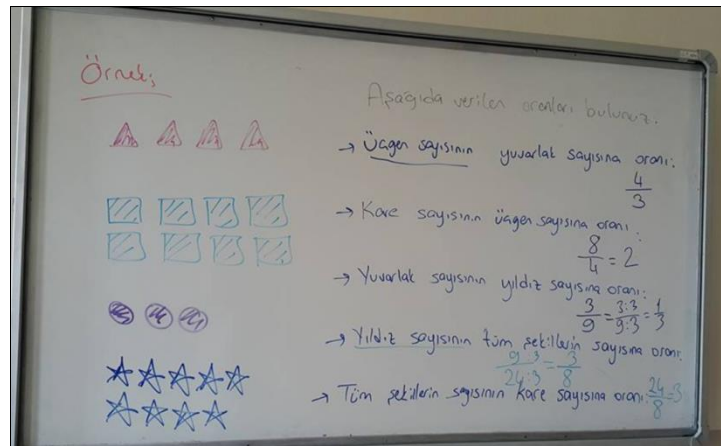 Örnek;
Aşağıda verilen oranları bulunuz.
→ Üçgen sayısının yuvarlak sayısına oranı:
4/3
→ Kare sayısının üçgen sayısına oranı:
8/4 = 2
→ Yuvarlak sayısının yıldız sayısına oranı:
3/9 = 3:3/9:3 = 1/3
→ Yıldız sayısının tüm şekillerin sayısına oranı:
9:3/24:3 = 3/8
→ Tüm şekillerin sayısının kare sayısına oranı: 24/8 = 3